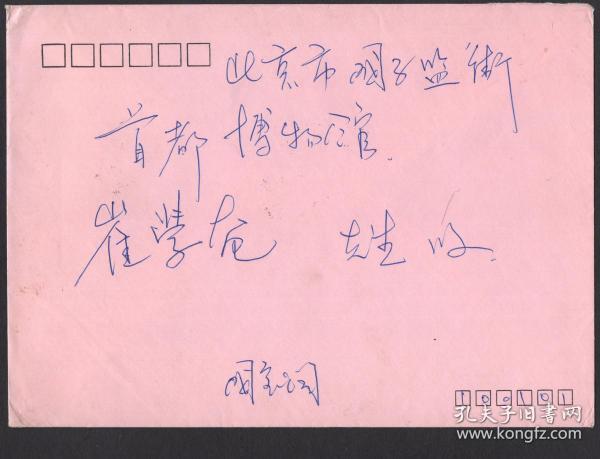 北京市国子监街
首都博物馆
崔学庵 先生 收
100101
孔夫子旧书网
www.kongfz.com